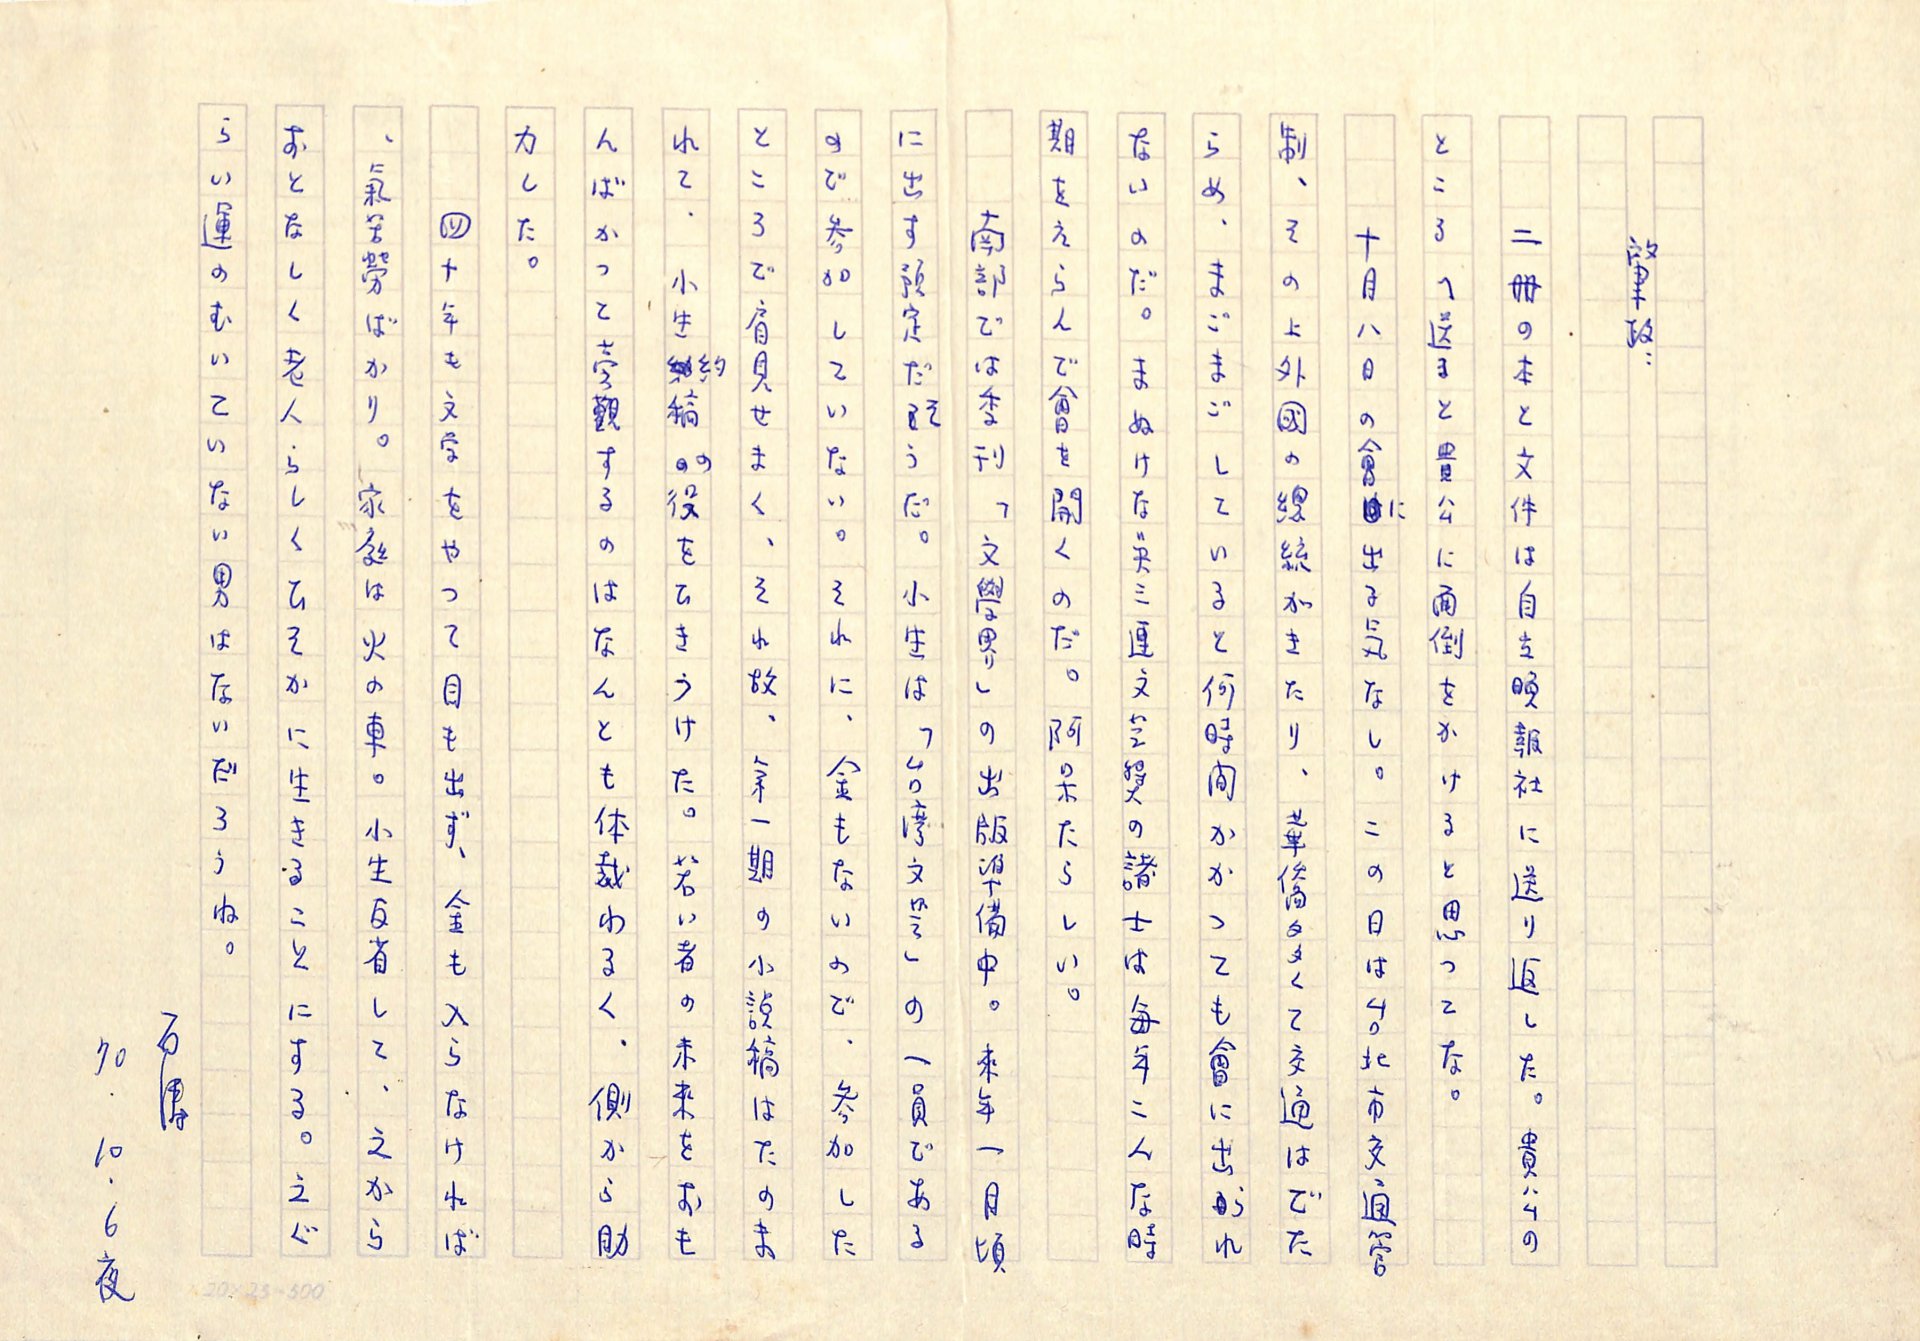 肇政：
二冊の本と文件は自立晩報社に送り返した。貴公の
ところへ送ると貴公に面倒をかけると思ってな。
十月八日の會に出る気なし。この日は台北市交通管
制、その上外國の総統がきたり、華僑多くて交通はでた
らめ、まごまごしていると何時間かかっても會に出られ
ないのだ。まぬけな呉三連文芸奨の諸士は毎年こんな時
期をえらんで會を開くのだ。阿呆たらしい。
南部では季刊「文學界」の出版準備中。来年一月頃
に出す預定だそうだ。小生は「台湾文芸」の一員である
ので参加していない。それに、金もないので、参加した
ところで肩見せまく、それ故、第一期の小説稿はたのま
れて、小生約稿の役をひきうけた。若い者の未来をおも
んばかって旁觀するのはなんとも体裁わるく、側から助
力した。
四十年も文学をやって目も出ず、金も入らなければ
、氣苦勞ばかり。家庭は火の車。小生反省して、之から
おとなしく老人らしくひそかに生きることにする。之ぐ
らい運のむいていない男はないだろうね。
石濤
70.10.6夜
20×25=500